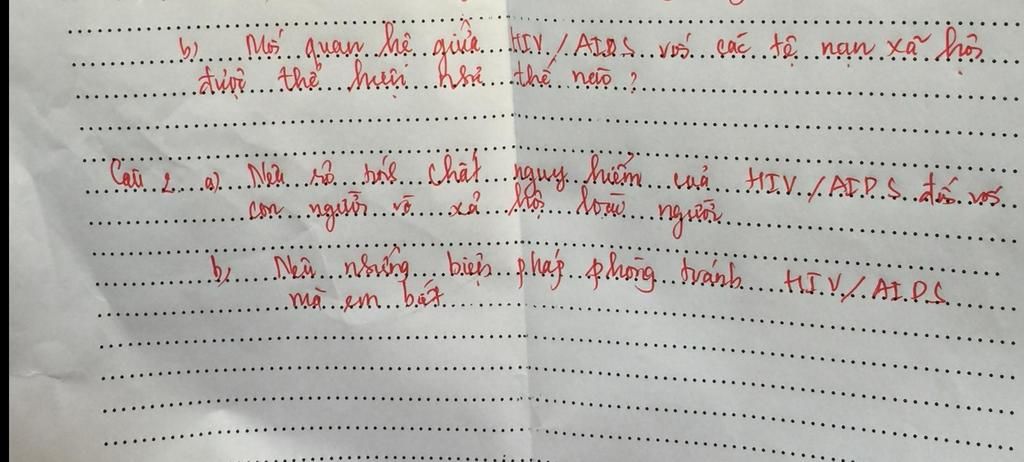 b) Mối quan hệ giữa HIV/AIDS với các tệ nạn xã hội
được thể hiện như thế nào?
Câu 2 a) Nêu rõ tính chất nguy hiểm của HIV/AIDS đối với
con người và xã hội loài người
b, Nêu những biện pháp phòng tránh HIV/AIDS
mà em biết